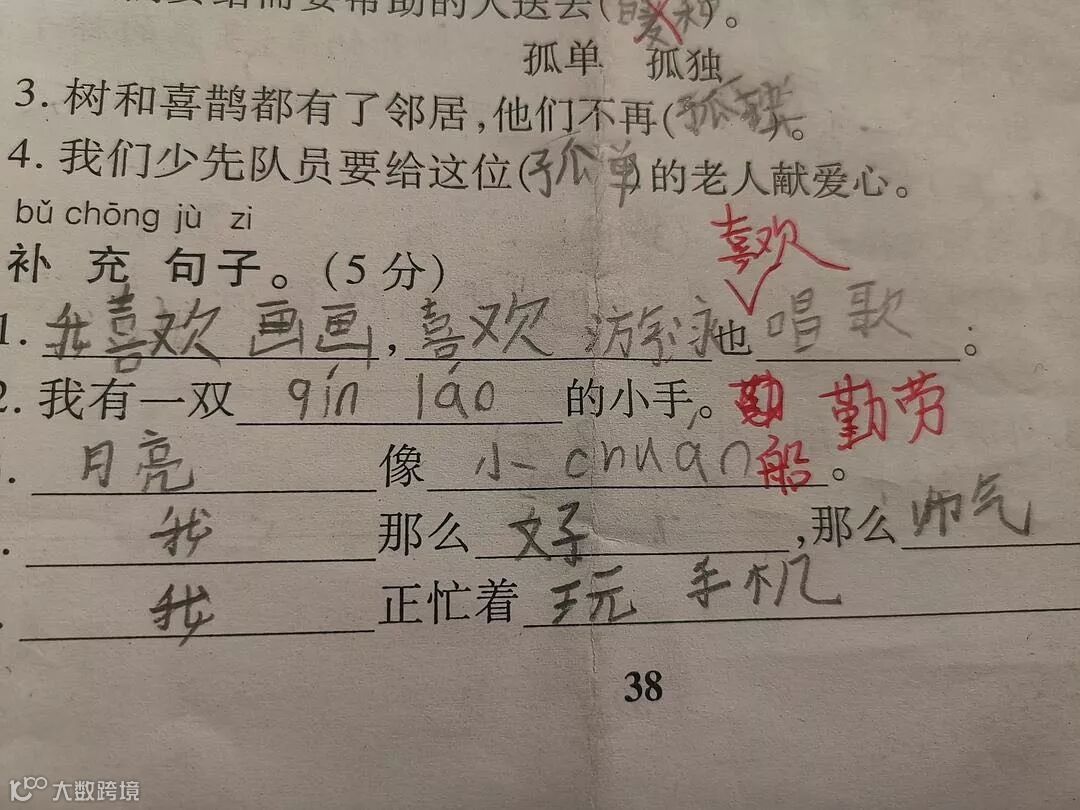 给需要帮助的人送去( )。
孤单 孤独
3. 树和喜鹊都有了邻居,他们不再(孤 )。
4. 我们少先队员要给这位(孤单)的老人献爱心。
bǔ chōng jù zi
补充句子。(5分)
喜欢
1. 我喜欢画画,喜欢游泳也唱歌。
2. 我有一双qín láo的小手。勤 勤劳
. 月亮像小chuán船。
. 我那么 子,那么帅气
. 我正忙着玩手机
38
大数跨境